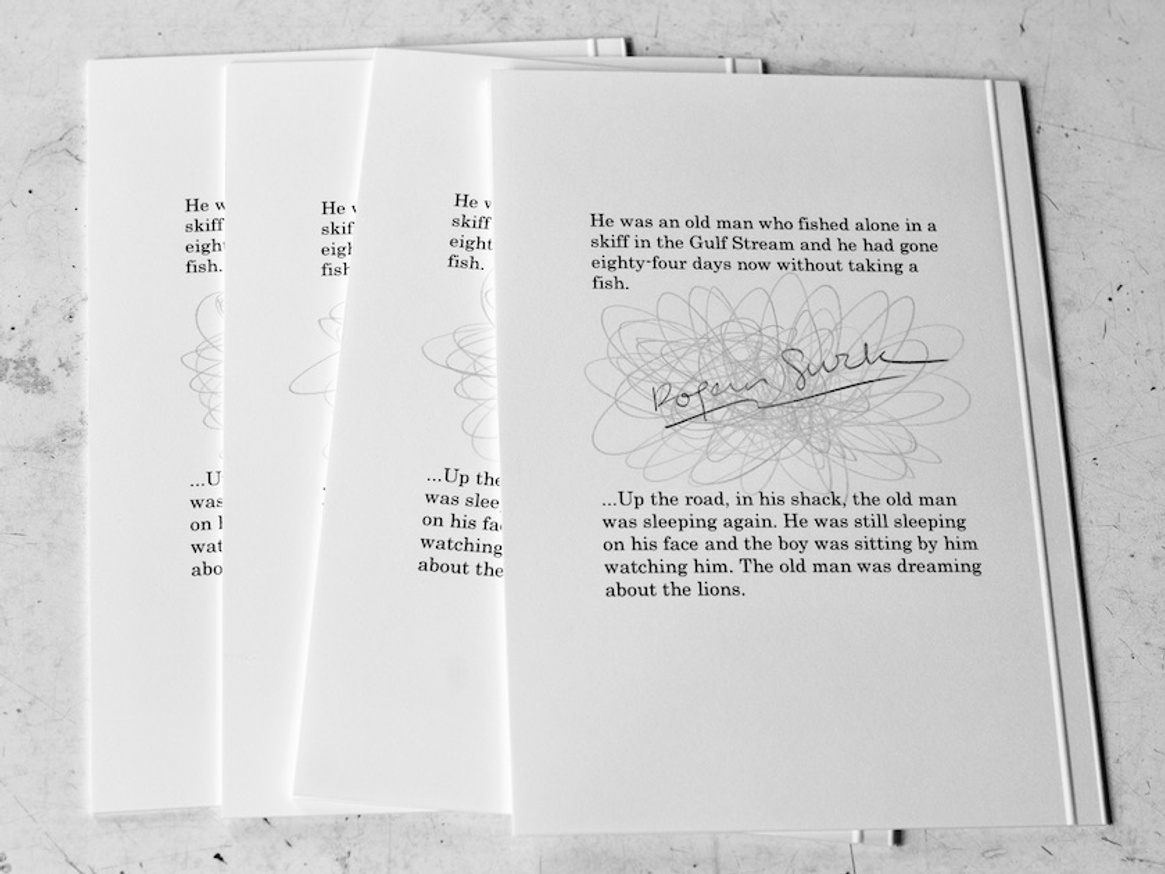 He w
skiff
eigh
fish.
...U
was
on
wat
abo
He
skif
eigh
fish
He
skiff
eight
fish.
...Up the
was slee
on his fa
watching
about the
He was an old man who fished alone in a
skiff in the Gulf Stream and he had gone
eighty-four days now without taking a
fish.
...Up the road, in his shack, the old man
was sleeping again. He was still sleeping
on his face and the boy was sitting by him
watching him. The old man was dreaming
about the lions.